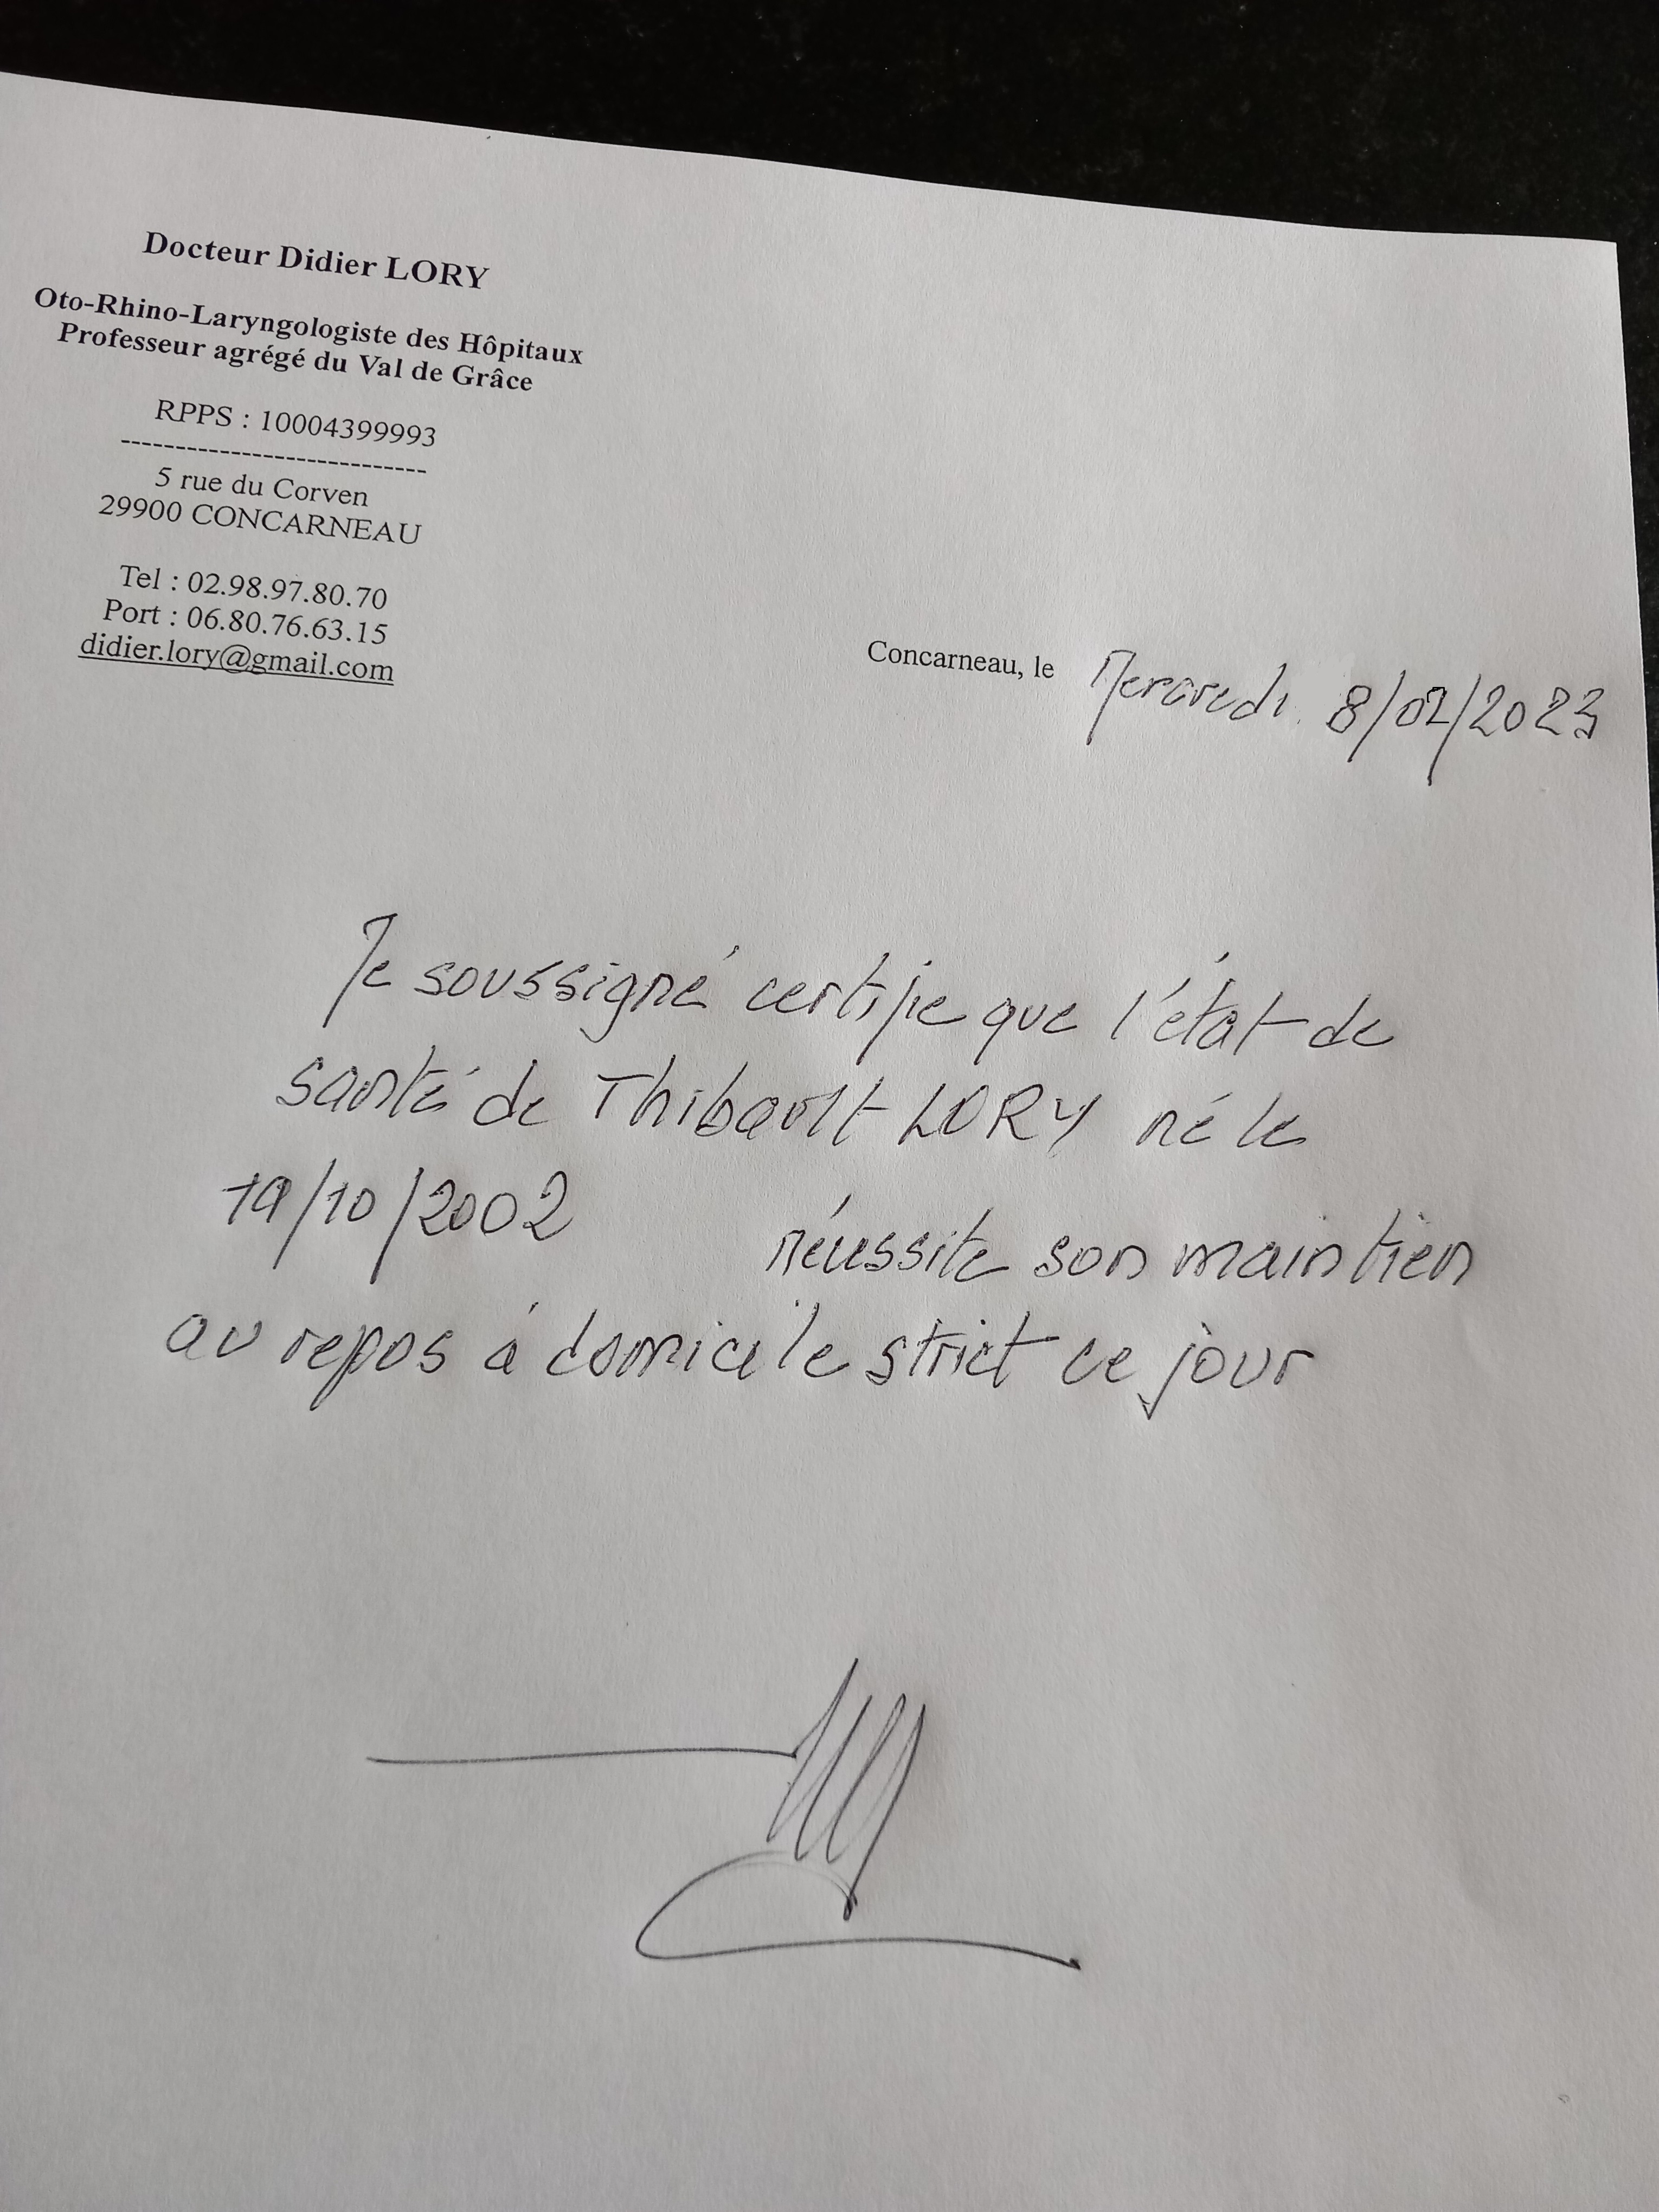 Docteur Didier LORY
Oto-Rhino-Laryngologiste des Hôpitaux
Professeur agrégé du Val de Grâce
RPPS : 10004399993
----------------------------
5 rue du Corven
29900 CONCARNEAU
Tel : 02.98.97.80.70
Port : 06.80.76.63.15
didier.lory@gmail.com
Concarneau, le Mercredi 8/02/2023
Je soussigné certifie que l'état de
santé de Thibault LORY né le
19/10/2002 néussite son maintien
au repos à domicile strict ce jour